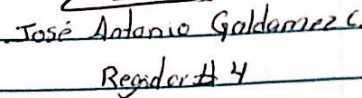 José Antonio Galdamez C.
Regidor # 4